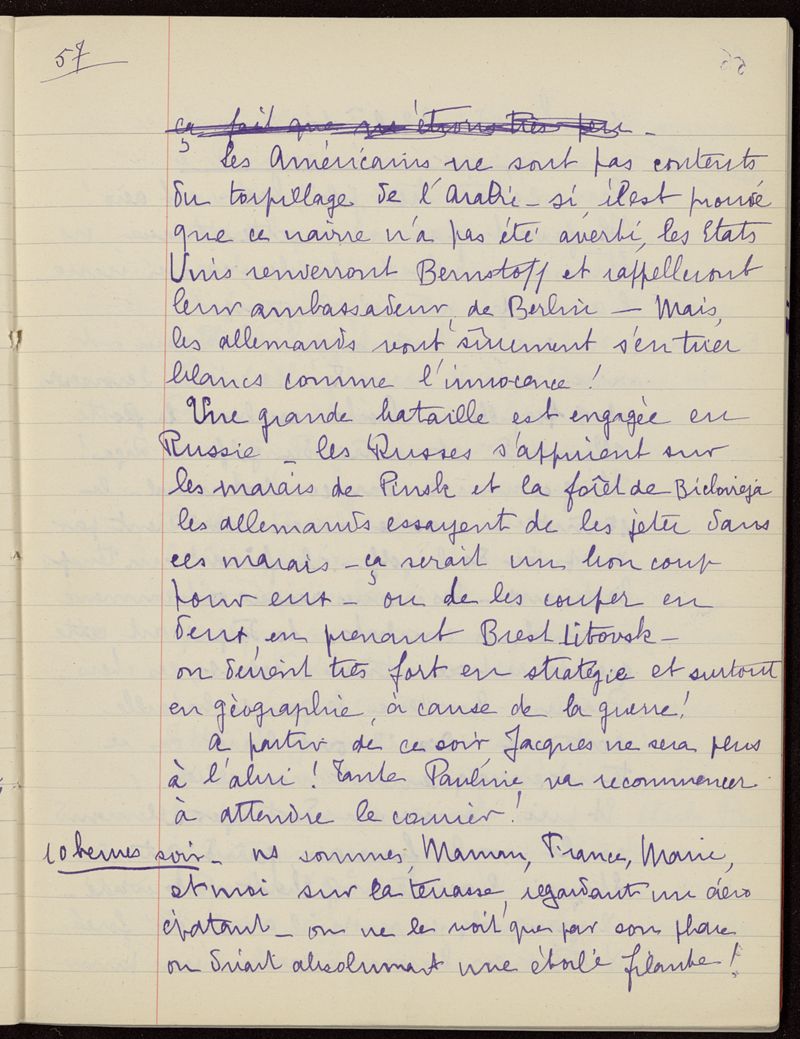 57
ça fait que ns étions très peu -
Les Américains ne sont pas contents
du torpillage de l'Arabic - si il est prouvé
que ce navire n'a pas été averti, les Etats
Unis renverront Bernstoff et rappelleront
leur ambassadeur, de Berlin — Mais,
les allemands vont sûrement s'en tirer
blancs comme l'innocence !
Une grande bataille est engagée en
Russie - les Russes s'appuient sur
les marais de Pinsk et la forêt de Bielovieja
les allemands essayent de les jeter dans
ces marais - ça serait un bon coup
pour eux - ou de les couper en
deux, en prenant Brest Litovsk -
on devient très fort en stratégie et surtout
en géographie, à cause de la guerre !
à partir de ce soir Jacques ne sera plus
à l'abri ! Tante Pauline, va recommencer
à attendre le courrier !
10 heures soir - ns sommes, Maman, France, Marie,
et moi sur la terrasse, regardant un aéro
épatant - on ne le voit que par son phare
on dirait absolument une étoile filante !